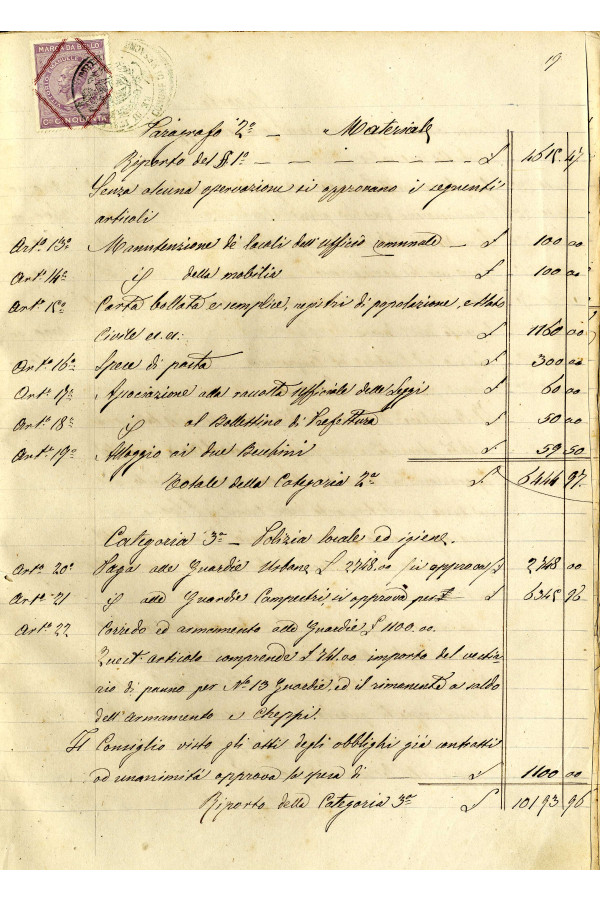 MARCA DA BOLLO
Ct CINQUANTA
Paragrafo 2° — Materiale
Riporto del § 1° — — — — — — £ 4615.47.
Senza alcuna osservazione si approvano i seguenti
articoli
Art.° 13° Manutenzione de' locali dell'ufficio comunale — £ 100.00
Art.° 14° id della mobilia £ 100.00
Art.° 15° Carta bollata e semplice, registri di popolazione, e Stato
Civile ec. ec. £ 1160.00
Art.° 16° Spece di posta £ 300.00
Art.° 17° Associazione alla raccolta Ufficiale delle Leggi £ 60.00
Art.° 18° id al Bollettino di Prefettura £ 50.00
Art.° 19° Alloggio ai due Becchini £ 59.50
Totale della Categoria 2ª £ 6444.97.
Categoria 3ª — Polizia locale ed igiene.
Art.° 20° Paga alle Guardie Urbane £ 2748.00 si approva £ 2748.00
Art.° 21 id alle Guardie Campestri, si approva per £ 6345.96
Art.° 22 Corredo ed armamento alle Guardie £ 1100.00.
Quest'articolo comprende £ 741.00 importo del vestia-
rio di panno per N.° 13 Guardie, ed il rimanente a saldo
dell'Armamento e Cheppì.
Il Consiglio visto gli atti degli obblighi già contratti
ad unanimità approva la spesa di £ 1100.00
Riporto della Categoria 3ª £ 10193.96